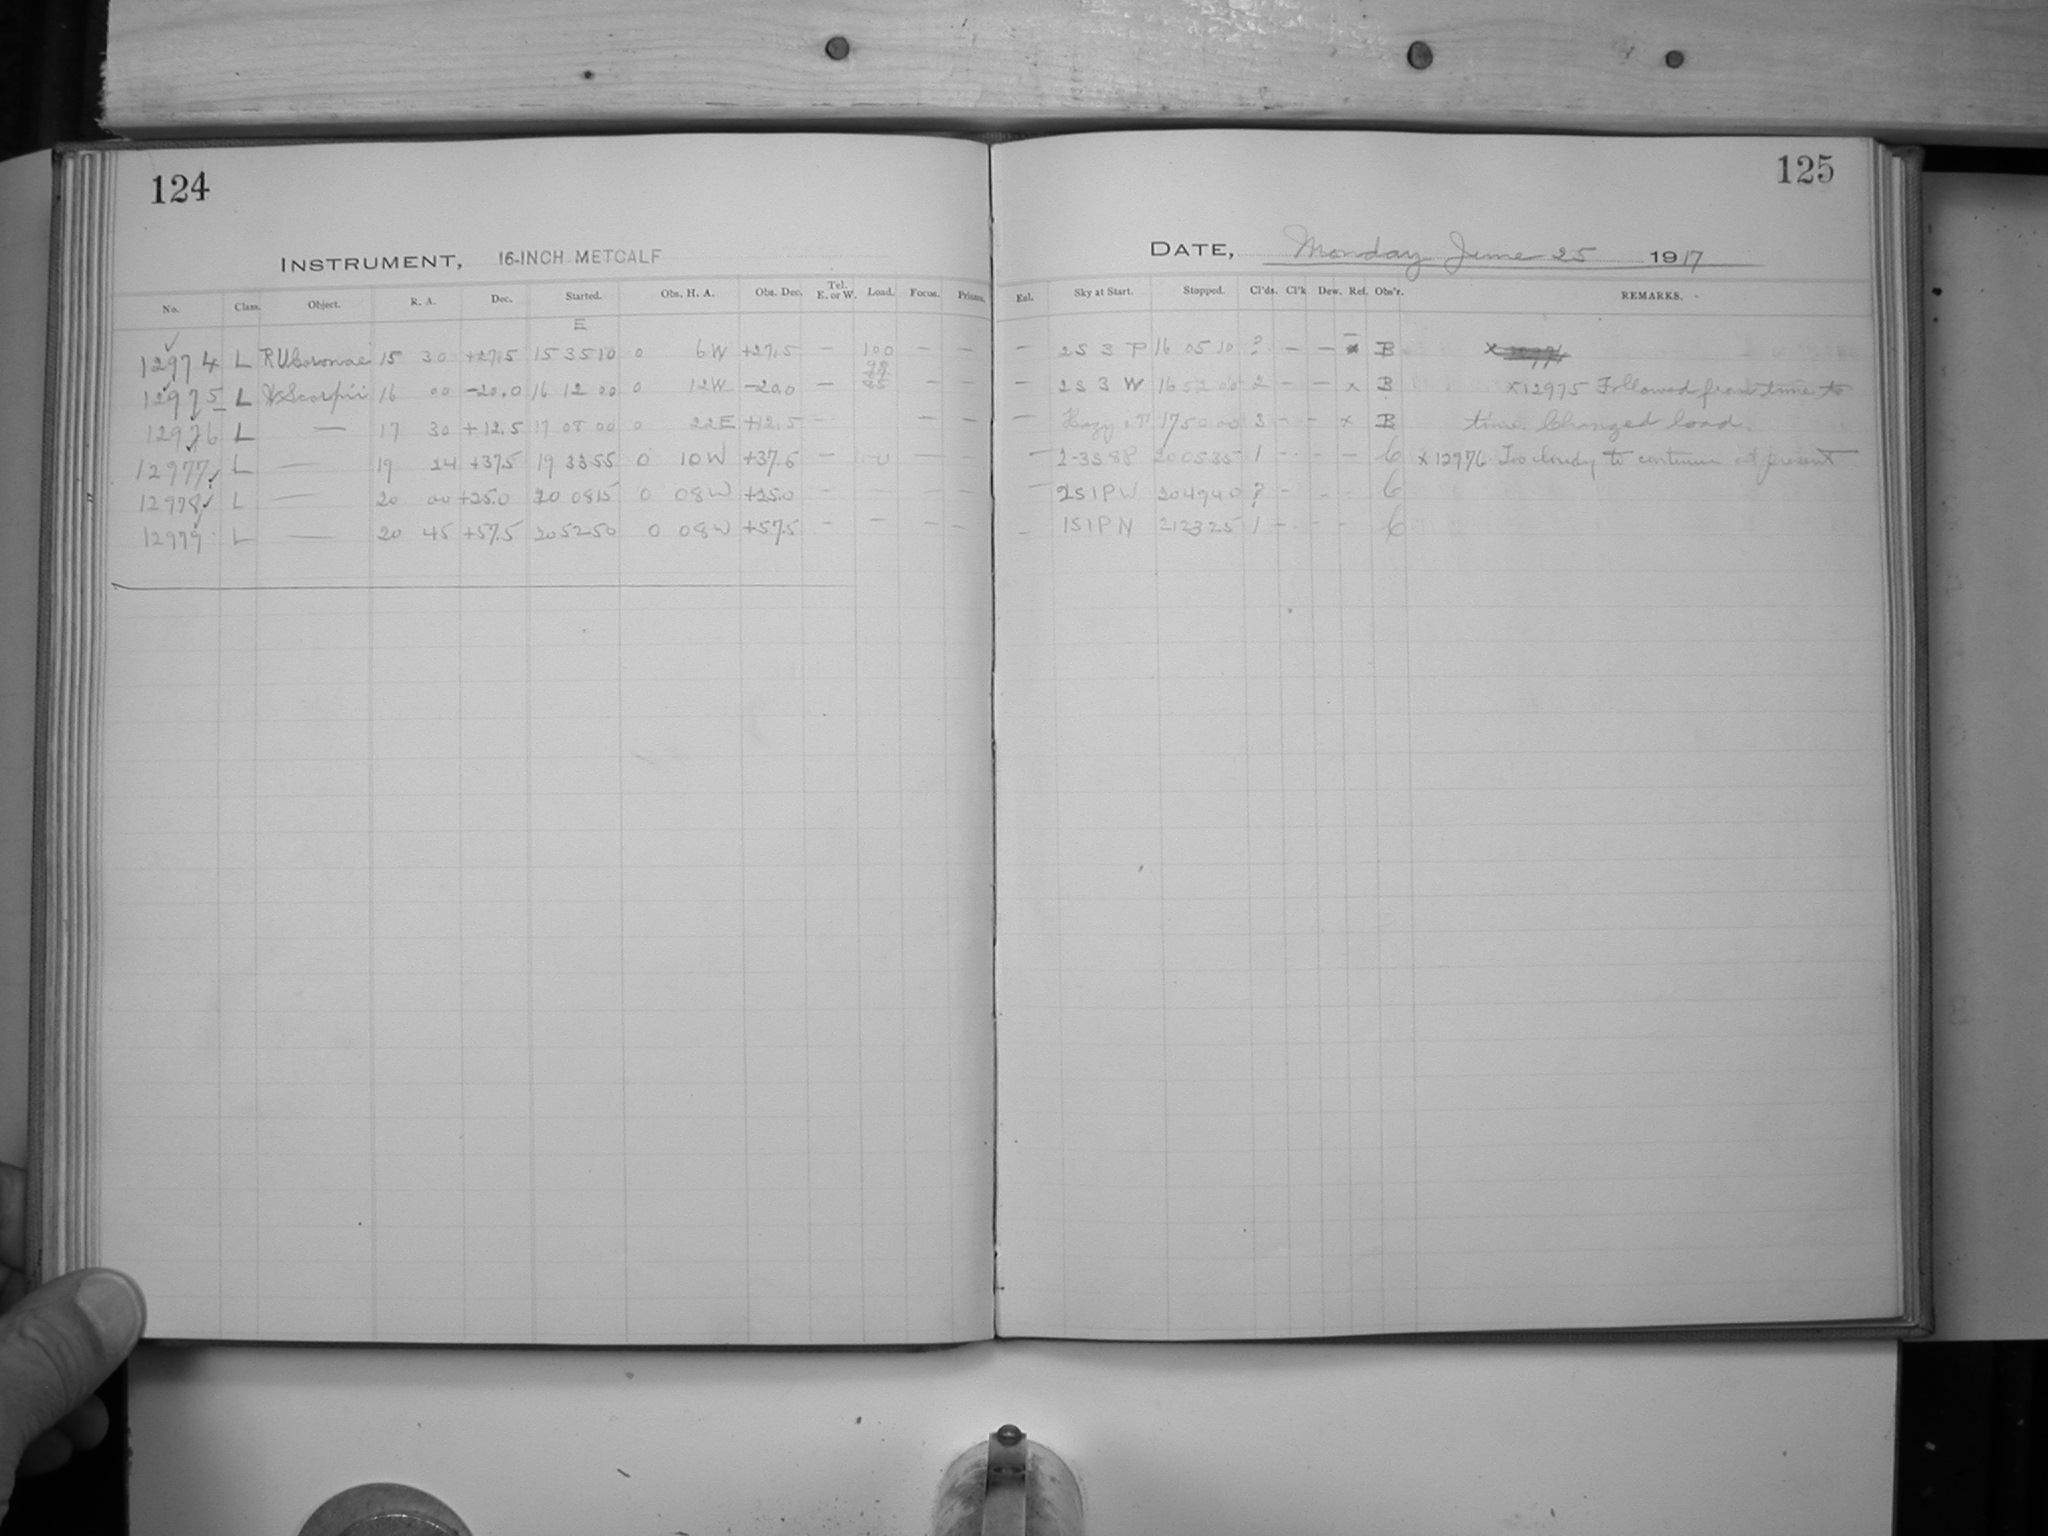 124
INSTRUMENT, 16-INCH METCALF
No. Class. Object. R. A. Dec. Started. Obs. H. A. Obs. Dec. Tel. E. or W. Load. Focus. Prisms.
E
12974 L RU Coronae 15 30 +27.5 15 35 10 0 6W +27.5 — 100 — —
12975 L Scorpii 16 00 -20.0 16 12 00 0 12W -20.0 — — —
12976 L — 17 30 +12.5 17 08 00 0 22E +12.5 — — —
12977 L — 19 24 +37.5 19 33 55 0 10W +37.5 — — —
12978 L — 20 00 +25.0 20 08 15 0 08W +25.0 — — — —
12979 L — 20 45 +57.5 20 52 50 0 08W +57.5 — — — —
125
DATE, Monday June 25 1917
Exl. Sky at Start. Stopped. Cl'ds. Cl'k Dew. Ref. Obs'r. REMARKS.
— 2S 3 P 16 05 10 ? — — B x
— 2S 3 W 16 52 00 2 — — x B x12975 Followed from time to
— Hazy 17 50 00 3 — — x B time. Changed load.
— 20 05 35 1 — — — 6 x12976 Too cloudy to continue at present
— 2S1PW 20 49 40 ? — — — 6
— 1S1PN 21 23 25 1 — — — 6